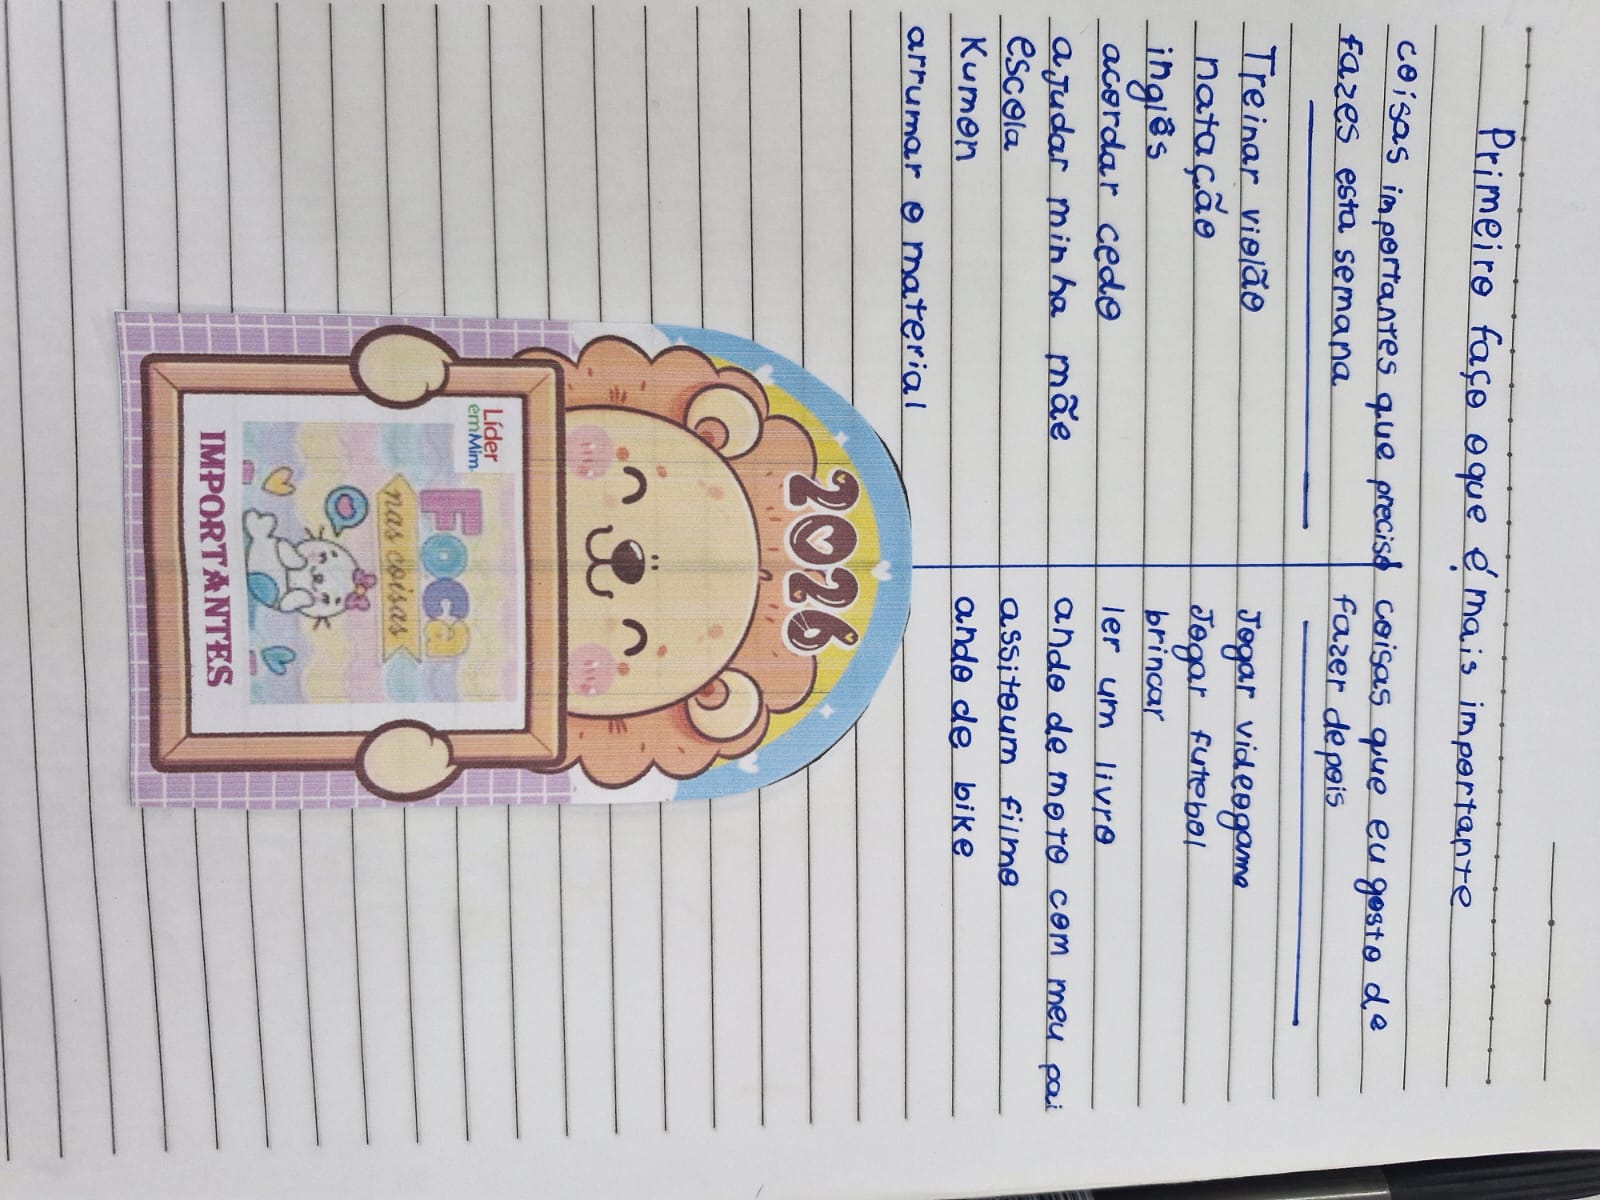 Primeiro faço oque é mais importante
coisas importantes que preciso
fazes esta semana
Treinar violão
natação
inglês
acordar cedo
ajudar minha mãe
escola
Kumon
arrumar o material
coisas que eu gosto de
fazer depois
Jogar videogame
Jogar futebol
brincar
ler um livro
ando de moto com meu pai
assiteum filme
ando de bike
2026
Líder
emMim
FOCA
nas coisas
IMPORTANTES